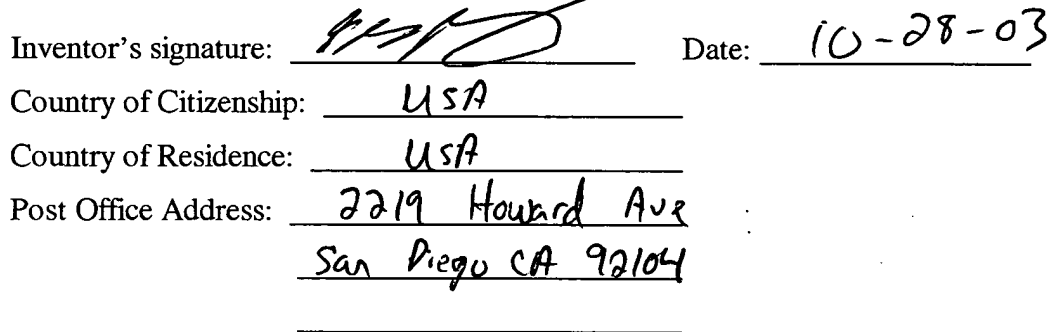 Inventor's signature: Date: 10-28-03
Country of Citizenship: USA
Country of Residence: USA
Post Office Address: 2219 Howard Ave
San Diego CA 92104